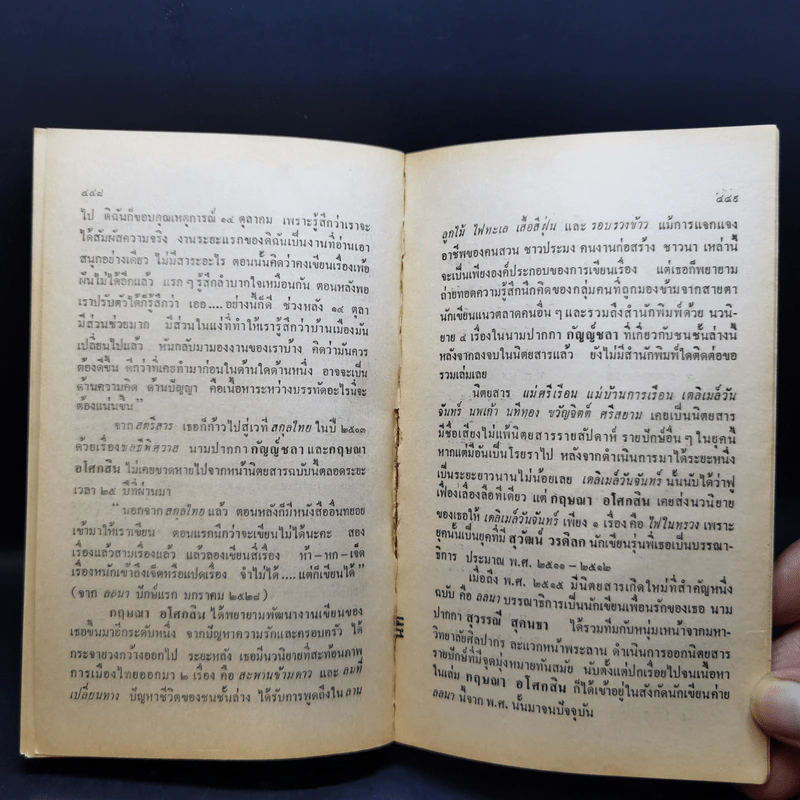 ๔๔๘
ไป ดิฉันก็ขอบคุณเหตุการณ์ ๑๔ ตุลาคม เพราะรู้สึกว่าเราจะ
ได้สัมผัสความจริง งานระยะแรกของดิฉันเป็นงานที่อ่านเอา
สนุกอย่างเดียว ไม่มีสาระอะไร ตอนนั้นคิดว่าคงเขียนเรื่องเพ้อ
ฝันไม่ได้อีกแล้ว แรก ๆ รู้สึกลำบากใจเหมือนกัน ตอนหลังพอ
เราปรับตัวได้ก็รู้สึกว่า เออ....อย่างนี้ก็ดี ช่วงหลัง ๑๔ ตุลา
มีส่วนช่วยมาก มีส่วนในแง่ที่ทำให้เรารู้สึกว่าบ้านเมืองมัน
เปลี่ยนไปแล้ว หันกลับมามองงานของเราบ้าง คิดว่ามันควร
ต้องดีขึ้น ดีกว่าที่เคยทำมาก่อนในด้านใดด้านหนึ่ง อาจจะเป็น
ด้านความคิด ด้านปัญญา คือเนื้อหาระหว่างบรรทัดอะไรนี่จะ
ต้องแน่นขึ้น"
จาก สตรีสาร เธอก็ก้าวไปสู่เวที สกุลไทย ในปี ๒๕๑๓
ด้วยเรื่องขอรีพิศวาส นามปากกา กัญญ์ชลา และกฤษณา
อโศกสิน ไม่เคยขาดหายไปจากหน้านิตยสารฉบับนี้ตลอดระยะ
เวลา ๒๕ ปีที่ผ่านมา
"นอกจาก สกุลไทย แล้ว ตอนหลังก็มีหนังสืออื่นทยอย
เข้ามาให้เราเขียน ตอนแรกนึกว่าจะเขียนไม่ได้นะคะ สอง
เรื่องแล้วสามเรื่องแล้ว แล้วลองเขียนสี่เรื่อง ห้า-หก-เจ็ด
เรื่องหนักเข้าถึงเจ็ดหรือแปดเรื่อง จำไม่ได้....แต่ก็เขียนได้"
(จาก ลลนา ปักษ์แรก มกราคม ๒๕๒๘)
กฤษณา อโศกสิน ได้พยายามพัฒนางานเขียนของ
เธอขึ้นมาอีกระดับหนึ่ง จากปัญหาความรักและครอบครัว ได้
กระจายวงกว้างออกไป ระยะหลัง เธอมีนวนิยายที่สะท้อนภาพ
การเมืองไทยออกมา ๒ เรื่อง คือ สะพานข้ามดาว และ ลมที่
เปลี่ยนทาง ปัญหาชีวิตของชนชั้นล่าง ได้รับการพูดถึงใน ลาน
๔๔๙
ลูกไม้ ไฟทะเล เสื้อสีฝุ่น และ รอบรวงข้าว แม้การแจกแจง
อาชีพของคนสวน ชาวประมง คนงานก่อสร้าง ชาวนา เหล่านี้
จะเป็นเพียงองค์ประกอบของการเขียนเรื่อง แต่เธอก็พยายาม
ถ่ายทอดความรู้สึกนึกคิดของกลุ่มคนที่ถูกมองข้ามจากสายตา
นักเขียนแนวตลาดคนอื่น ๆ และรวมถึงสำนักพิมพ์ด้วย นวนิ-
ยาย ๔ เรื่องในนามปากกา กัญญ์ชลา ที่เกี่ยวกับชนชั้นล่างนี้
หลังจากลงจบในนิตยสารแล้ว ยังไม่มีสำนักพิมพ์ใดติดต่อขอ
รวมเล่มเลย
นิตยสาร แม่ศรีเรือน แม่บ้านการเรือน เดลิเมล์วัน
จันทร์ นพเก้า นทีทอง ขวัญจิตต์ ศรีสยาม เคยเป็นนิตยสาร
มีชื่อเสียงไม่แพ้นิตยสารรายสัปดาห์ รายปักษ์อื่น ๆ ในยุคนี้
หากแต่มีอันเป็นโรยราไป หลังจากดำเนินการมาได้ระยะหนึ่ง
เป็นระยะยาวนานไม่น้อยเลย เดลิเมล์วันจันทร์ นั้นนับได้ว่าฟู
เฟื่องเลื่องลือทีเดียว แต่ กฤษณา อโศกสิน เคยส่งนวนิยาย
ของเธอให้ เดลิเมล์วันจันทร์ เพียง ๑ เรื่อง คือ ไฟในทรวง เพราะ
ยุคนั้นเป็นยุคที่มี สุวัฒน์ วรดิลก นักเขียนรุ่นพี่เธอเป็นบรรณา-
ธิการ ประมาณ พ.ศ. ๒๕๑๑ - ๒๕๑๒
เมื่อถึง พ.ศ. ๒๕๑๕ มีนิตยสารเกิดใหม่ที่สำคัญหนึ่ง
ฉบับ คือ ลลนา บรรณาธิการเป็นนักเขียนเพื่อนรักของเธอ นาม
ปากกา สุวรรณี สุคนธา ได้รวมทีมกับหนุ่มเหน้าจากมหา-
วิทยาลัยศิลปากร ละแวกหน้าพระลาน ดำเนินการออกนิตยสาร
รายปักษ์ที่มีจุดมุ่งหมายทันสมัย นับตั้งแต่ปกเรื่อยไปจนเนื้อหา
ในเล่ม กฤษณา อโศกสิน ก็ได้เข้าอยู่ในสังกัดนักเขียนค่าย
ลลนา นี้จาก พ.ศ. นั้นมาจนปัจจุบัน